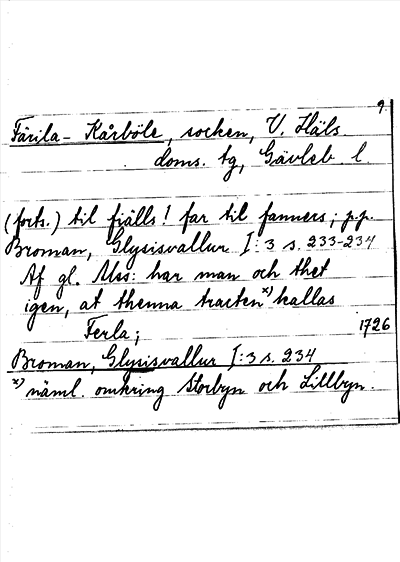 9.
Färila - Kårböle, socken, V. Häls.
doms. tg, Gävleb. l.
(forts.) til fjälls! far til fanners; p.p.
Broman, Glysisvallur I:3 s. 233-234
Af gl. Mss: har man och thet
igen, at thenna tracten x) kallas
Ferla; 1726
Broman, Glysisvallur I:3 s. 234
x) näml. omkring Storbyn och Lillbyn.